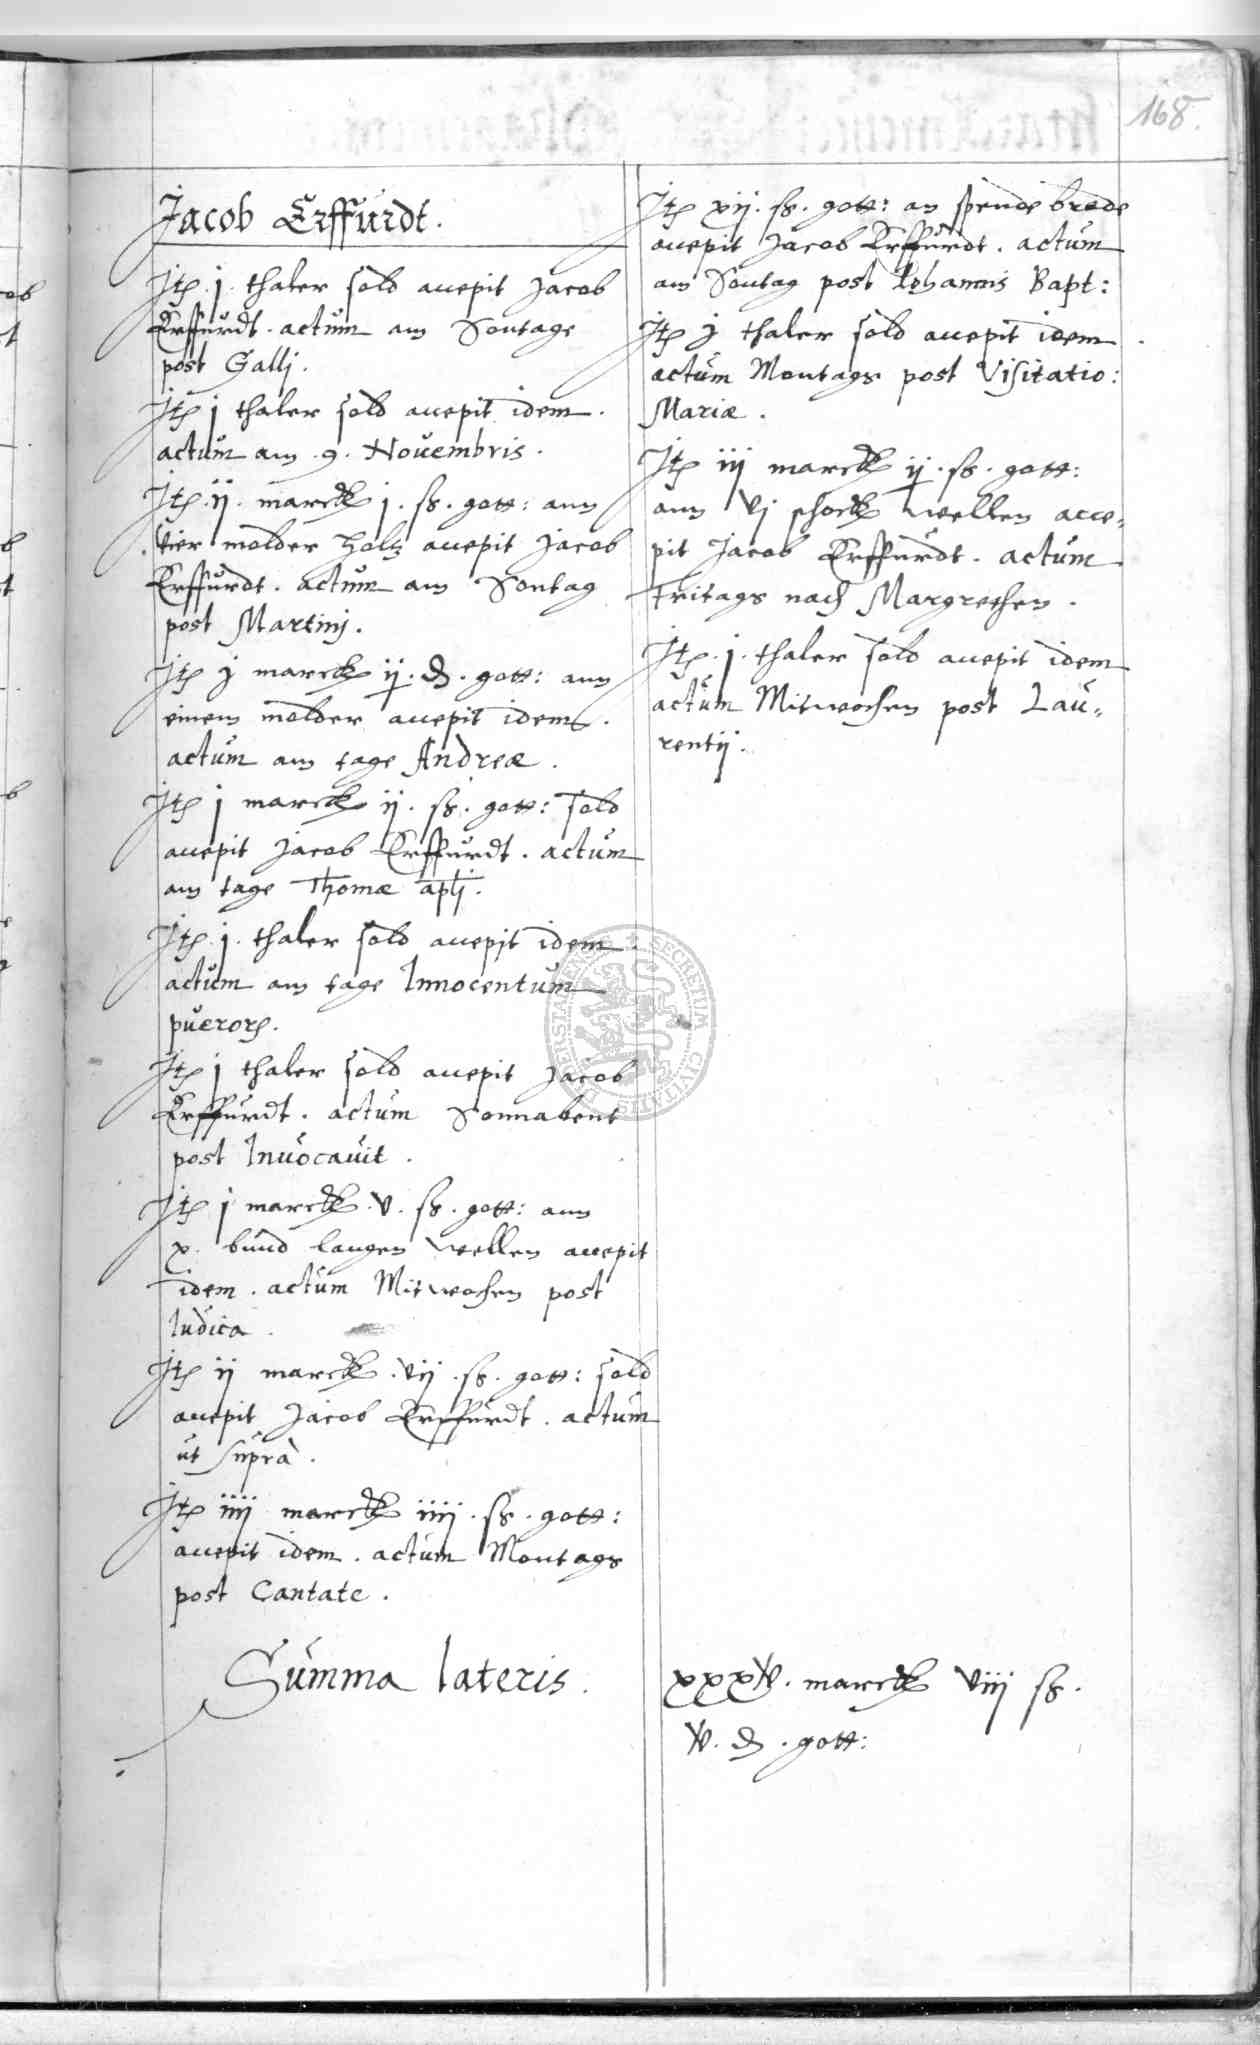 168.
Jacob Erffurdt.
Jtem .j. thaler sold accepit Jacob
Erffurdt. actum am Sontage
post Gallj.
Jtem j thaler sold accepit idem.
actum am .9. Novembris.
Jtem .ij. marck j. ß. gott: ann
vier molder holtz accepit Jacob
Erffurdt. actum am Sontag
post Martinj.
Jtem j marck ij. ₰. gott: ann
einem molder accepit idem.
actum am tage Andreæ.
Jtem j marck ij. ß. gott: sold
accepit Jacob Erffurdt. actum
am tage Thomæ apli.
Jtem .j. thaler sold accepit idem.
actum am tage Innocentum
puerorum.
Jtem j thaler sold accepit Jacob
Erffurdt. actum Sonnabent
post Invocavit.
Jtem j marck .v. ß. gott: ann
x. bund langen wellen accepit
idem. actum Mitwochen post
Iudica.
Jtem ij marck .vij. ß. gott: sold
accepit Jacob Erffurdt. actum
ut suprà.
Jtem iiij marck iiij. ß. gott:
accepit idem. actum Montags
post Cantate.
Jtem xij. ß. gott: an spende brode
accepit Jacob Erffurdt. actum
am Sontag post Iohannis Bapt:
Jtem j thaler sold accepit idem.
actum Montags post Visitatio:
Mariæ.
Jtem iij marck ij. ß. gott:
ann vj schock wellen acce-
pit Jacob Erffurdt. actum
Fritags nach Margrethen.
Jtem .j. thaler sold accepit idem
actum Mitwochen post Lau-
rentij.
Summa lateris.
xxxv. marck viij ß.
v. ₰. gott:
SECRETUM CIVITATIS